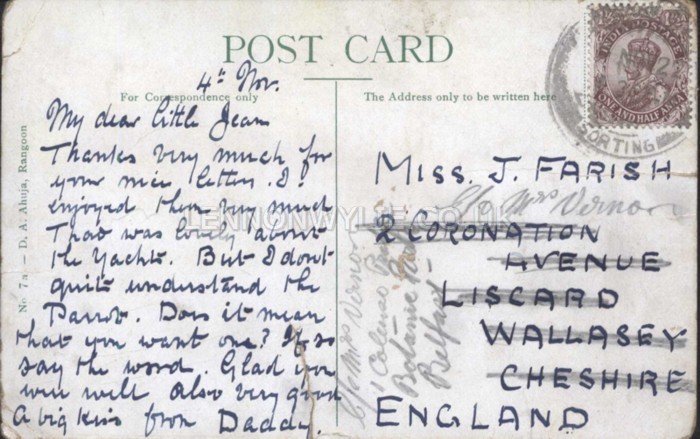 POST CARD
4th Nov.
For Correspondence only
The Address only to be written here
INDIA POSTAGE
ONE AND HALF ANNA
SORTING
My dear little Jean
Thanks very much for
your nice letters. I
enjoyed them very much
That was lovely about
the Yachts. But I dont
quite understand the
Parrot. Does it mean
that you want one? If so
say the word. Glad you
were well also very good
A big kiss from Daddy.
MISS. J. FARISH
C/o Mrs Vernon
2 CORONATION
AVENUE
LISCARD
WALLASEY
CHESHIRE
ENGLAND
C/o Mrs Vernon
1 Colenso
Botanic
Belfast
No 7a — D. A. Ahuja, Rangoon
LENNONWYLIE.CO.UK